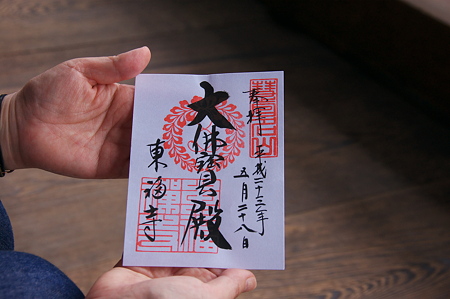 奉拝 平成二十三年
五月二十八日
大佛寳殿
東福寺